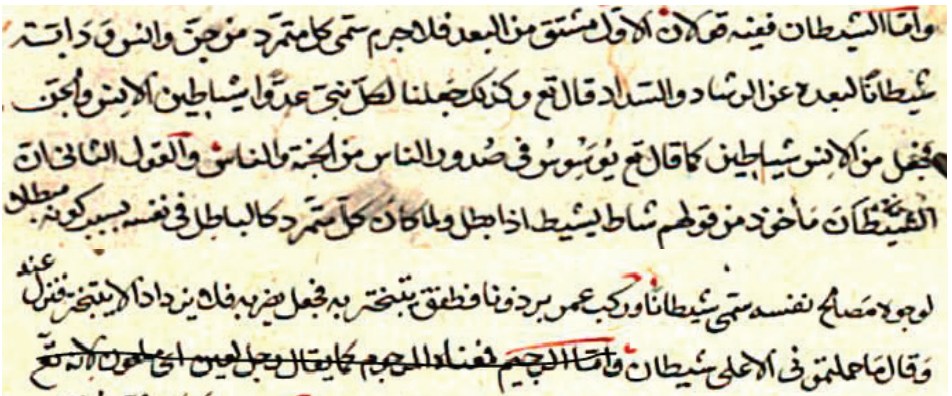 واما الشيطان ففيه قولان الاول مشتق من البعد فلا جرم سمى كل متمرد من جن وانس ودابة
شيطانا لبعده عن الرشاد والسداد قال تع وكذلك جعلنا لكل نبي عدوا شياطين الانس والجن
فجعل من الانس شياطين كما قال تع يوسوس في صدور الناس من الجنة والناس والقول الثاني ان
الشيطان مأخوذ من قولهم شاط يشيط اذا بطل ولما كان كل متمرد كالباطل في نفسه بسبب كونه مبطلا
لوجوه مصالح نفسه سمى شيطانا وركب عمر برذونا فطفق يتبختر به فجعل يضربه فلا يزداد الا تبخترا فنزل عنه
وقال ما حملتموني الا على شيطان واما الرجيم فمعناه المرجوم كما يقال رجل لعين اى ملعون لانه تع